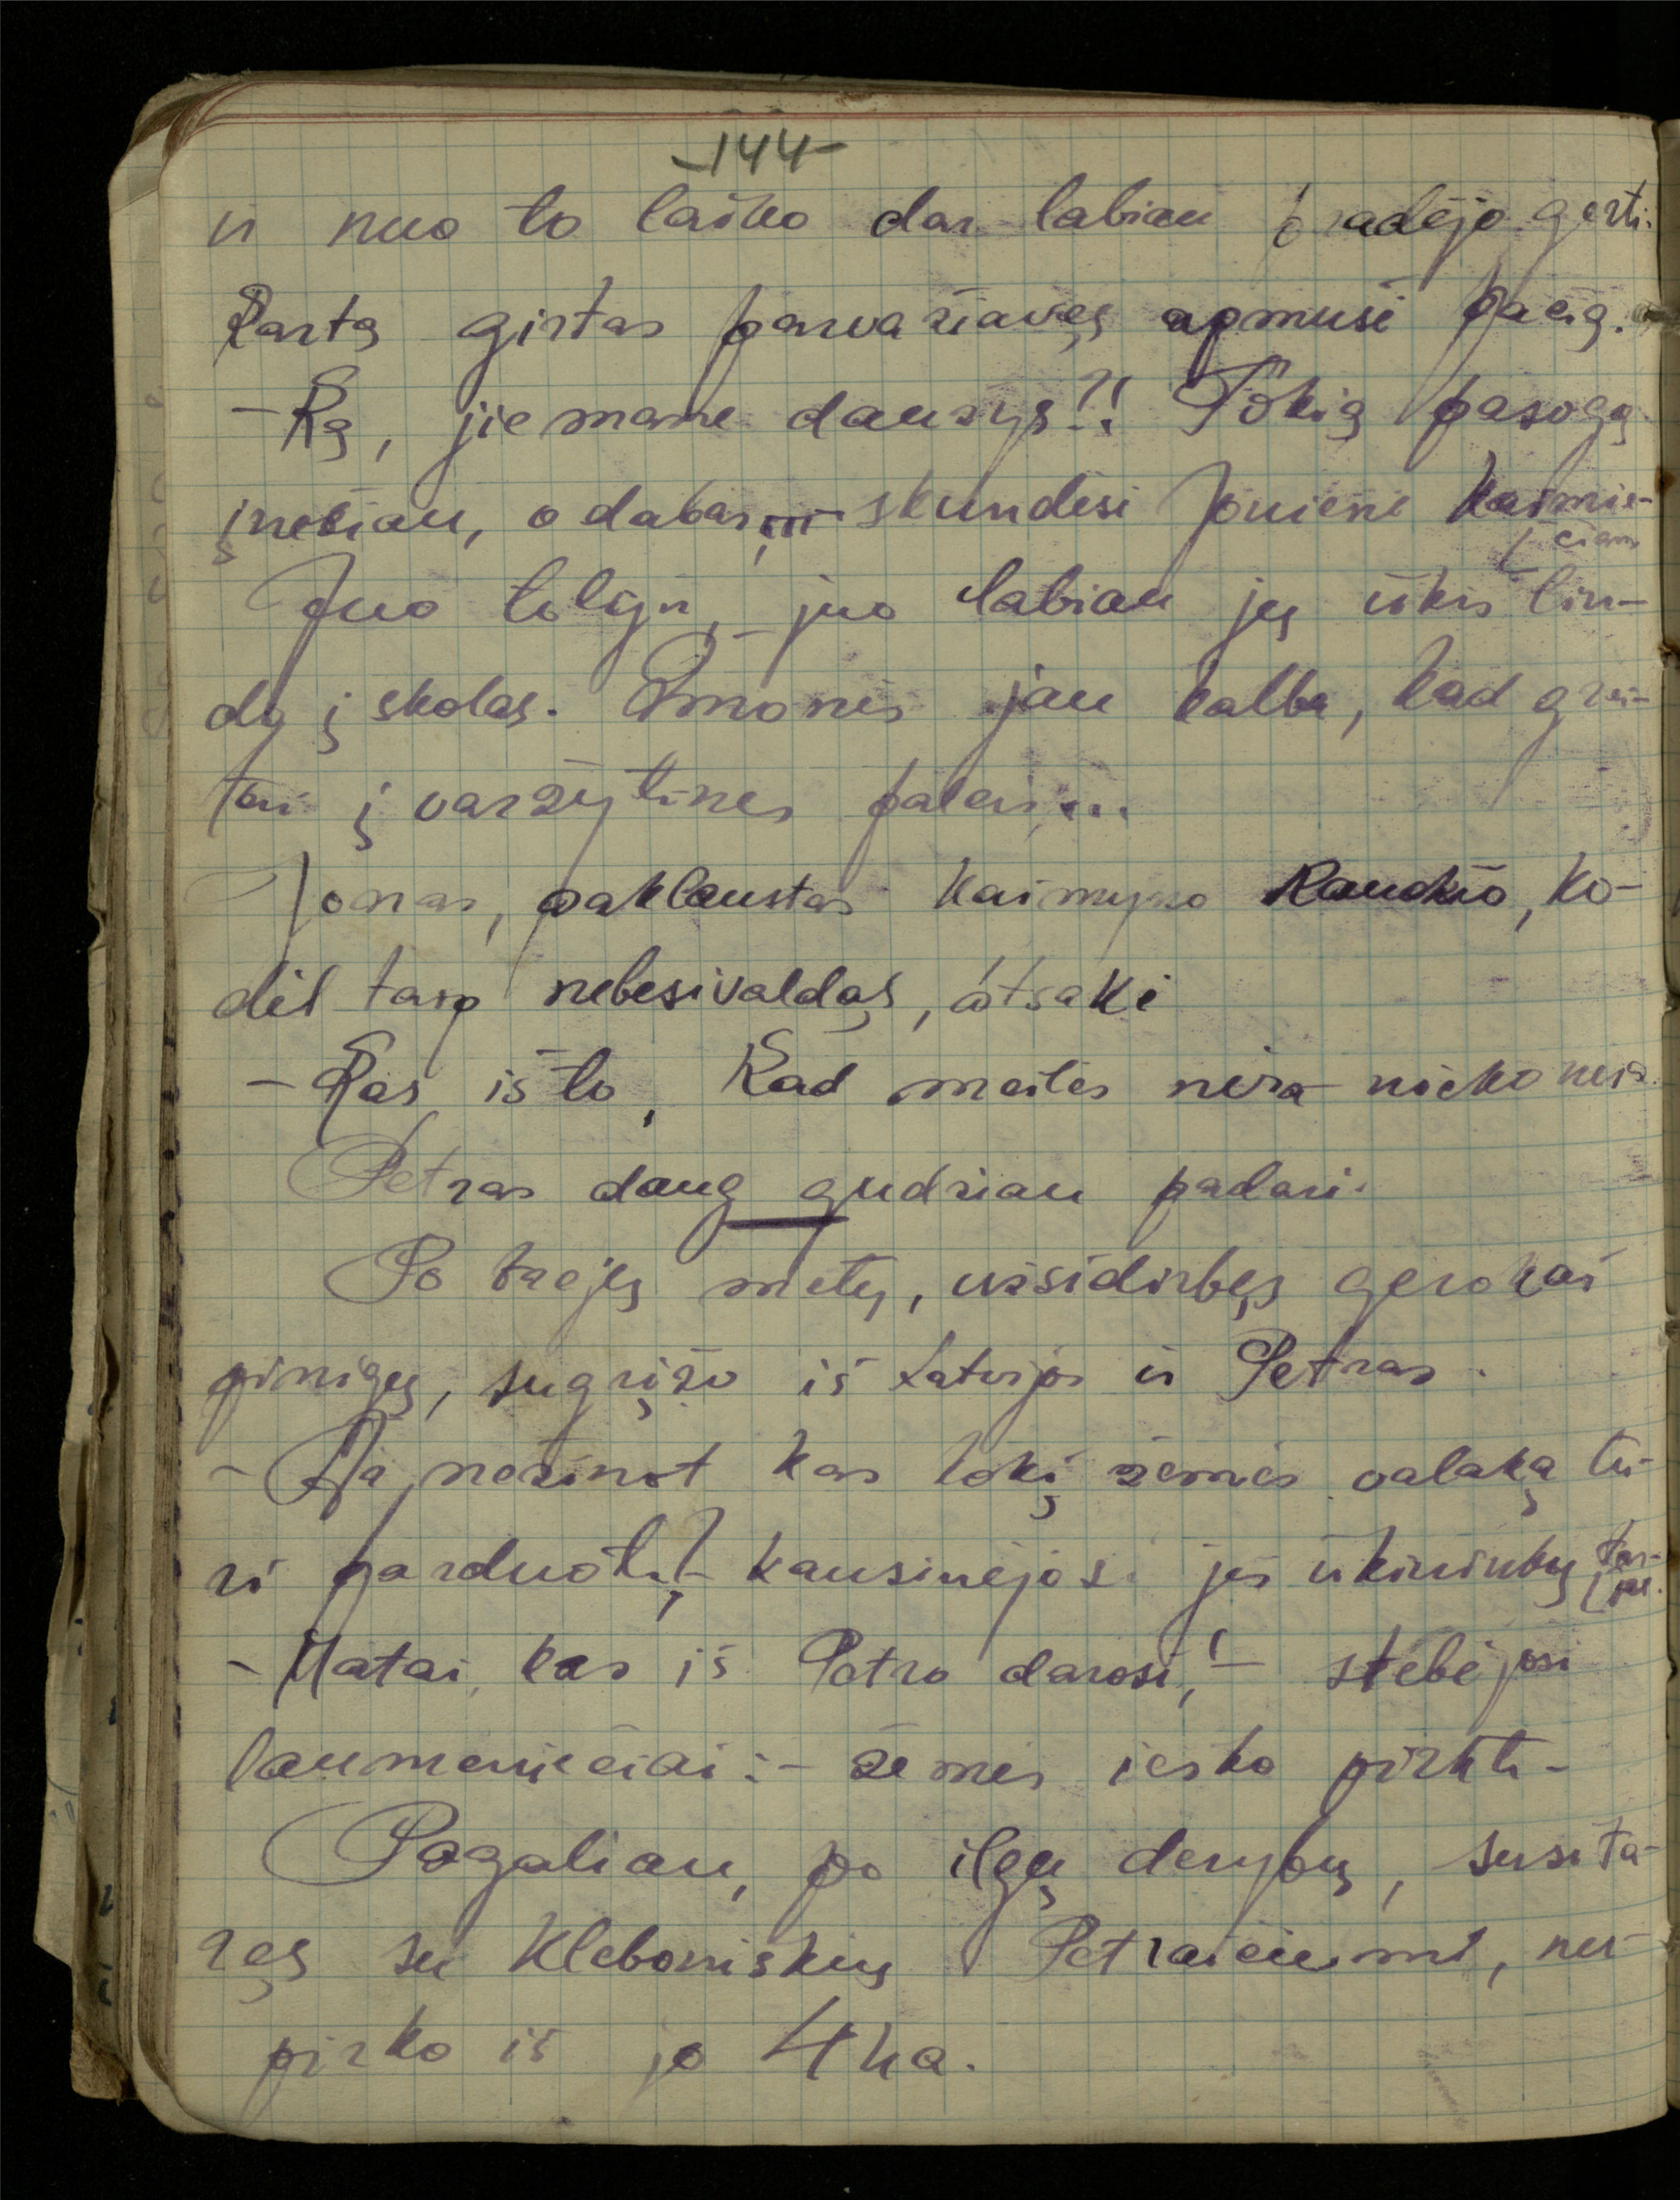 -144-
ir nuo to laiko dar labiau pradėjo gerti.
Kartą girtas parvažiavęs apmušė pačią.
- Ką, jie mane daužys?! Tokią pasogą
įnešiau, o dabar... skundėsi Jonienė kaimie-
čiams
Juo tolyn, - juo labiau jų ūkis lin-
do į skolas. Žmonės jau kalba, kad grei-
tai į varžytines paleis...
Jonas, paklaustas kaimyno Raudkio, ko-
dėl taip nebesivaldąs, atsakė
- Kas iš to, Kad meilės nėra nieko nėra.
Petras daug gudriau padarė.
Po trejų metų, užsidirbęs gerokai
pinigų, sugrįžo iš Latvijos ir Petras.
- Ar nežinot kas tokį žemės valaką tu-
ri parduoti? - kausinėjos jis ūkininkų tar-
pe.
- Matai, kas iš Petro darosi! - stebėjosi
laumeniečiai: - žemės ieško pirkti -
Pagaliau, po ilgų derybų, susita-
ręs su Kleboniškių Petraičiumi, nu-
pirko iš jo 4 ha.